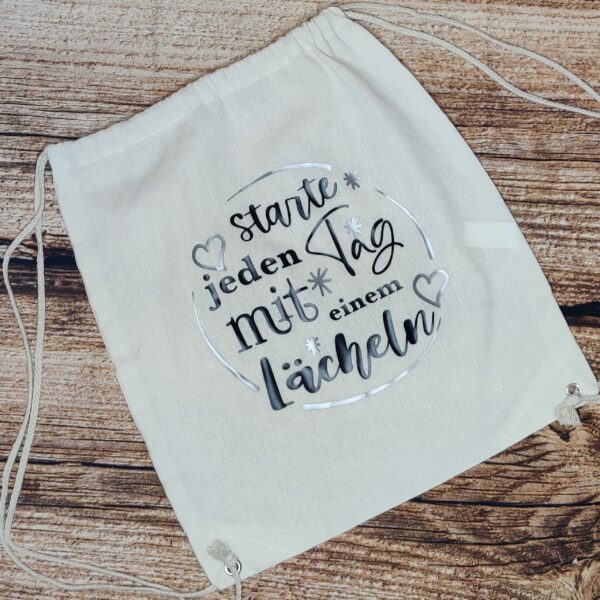 starte
jeden Tag
mit einem
Lächeln